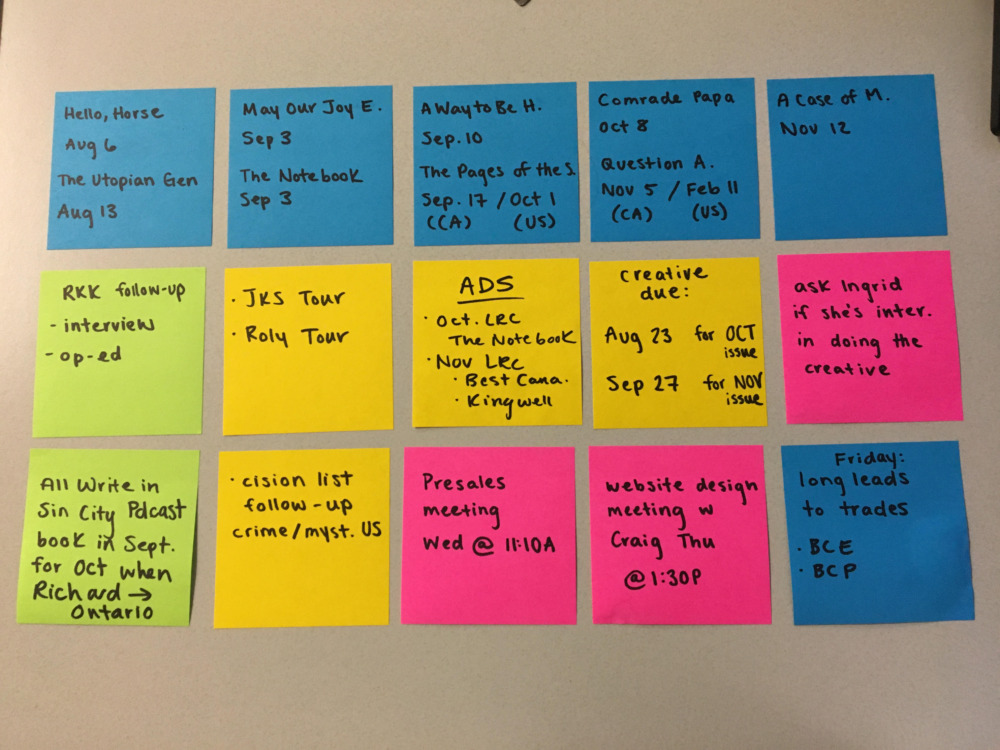 Hello, Horse
Aug 6
The Utopian Gen
Aug 13
May Our Joy E.
Sep 3
The Notebook
Sep 3
A Way to Be H.
Sep. 10
The Pages of the S.
Sep. 17 / Oct 1
(CA) (US)
Comrade Papa
Oct 8
Question A.
Nov 5 / Feb 11
(CA) (US)
A Case of M.
Nov 12
RKK follow-up
- interview
- op-ed
· JKS Tour
· Roly Tour
ADS
· Oct. LRC
The Notebook
· Nov LRC
· Best Cana.
· Kingwell
creative
due:
Aug 23 for OCT
issue
Sep 27 for NOV
issue
ask Ingrid
if she's inter.
in doing the
creative
All Write in
Sin City Podcast
book in Sept.
for Oct when
Richard →
Ontario
· cision list
follow-up
crime/myst. US
Presales
meeting
Wed @ 11:10A
website design
meeting w
Craig Thu
@ 1:30P
Friday:
long leads
to trades
· BCE
· BCP